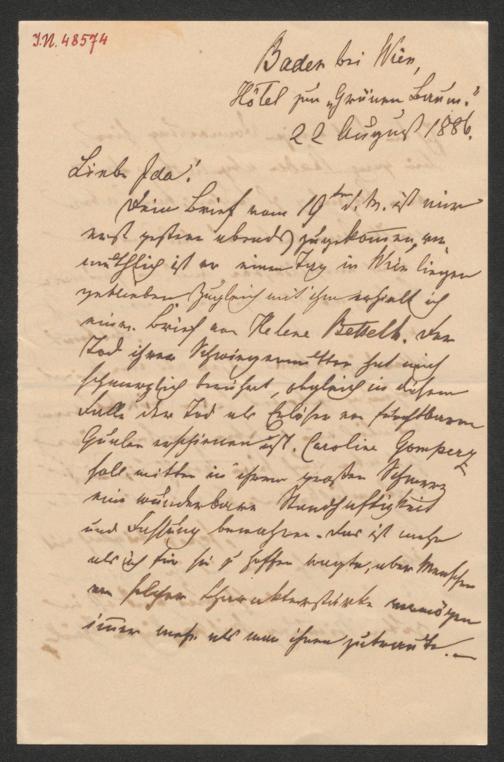 I.N. 48574
Baden bei Wien,
Hôtel zum „Grünen Baum."
22 August 1886.
Liebe Ida!
Dein Brief vom 19ten d. M. ist mir
erst gestern abends zugekommen, ver
muthlich ist er einen Tag in Wien liegen
geblieben. Zugleich mit ihm erhielt ich
einen Brief von Helene Bettelh. Der
Tod ihrer Schwiegermutter hat mich
schmerzlich berührt, obgleich in diesem
Falle der Tod als Erlöser von furchtbaren
Qualen erschienen ist. Caroline Gomperz
soll mitten in ihrem großen Schmerz
eine wunderbare Standhaftigkeit
und Fassung bewahren. Das ist mehr
als ich für sie zu hoffen wagte, aber Menschen
von solcher Charakterstärke vermögen
immer mehr als man ihnen zutraute. —